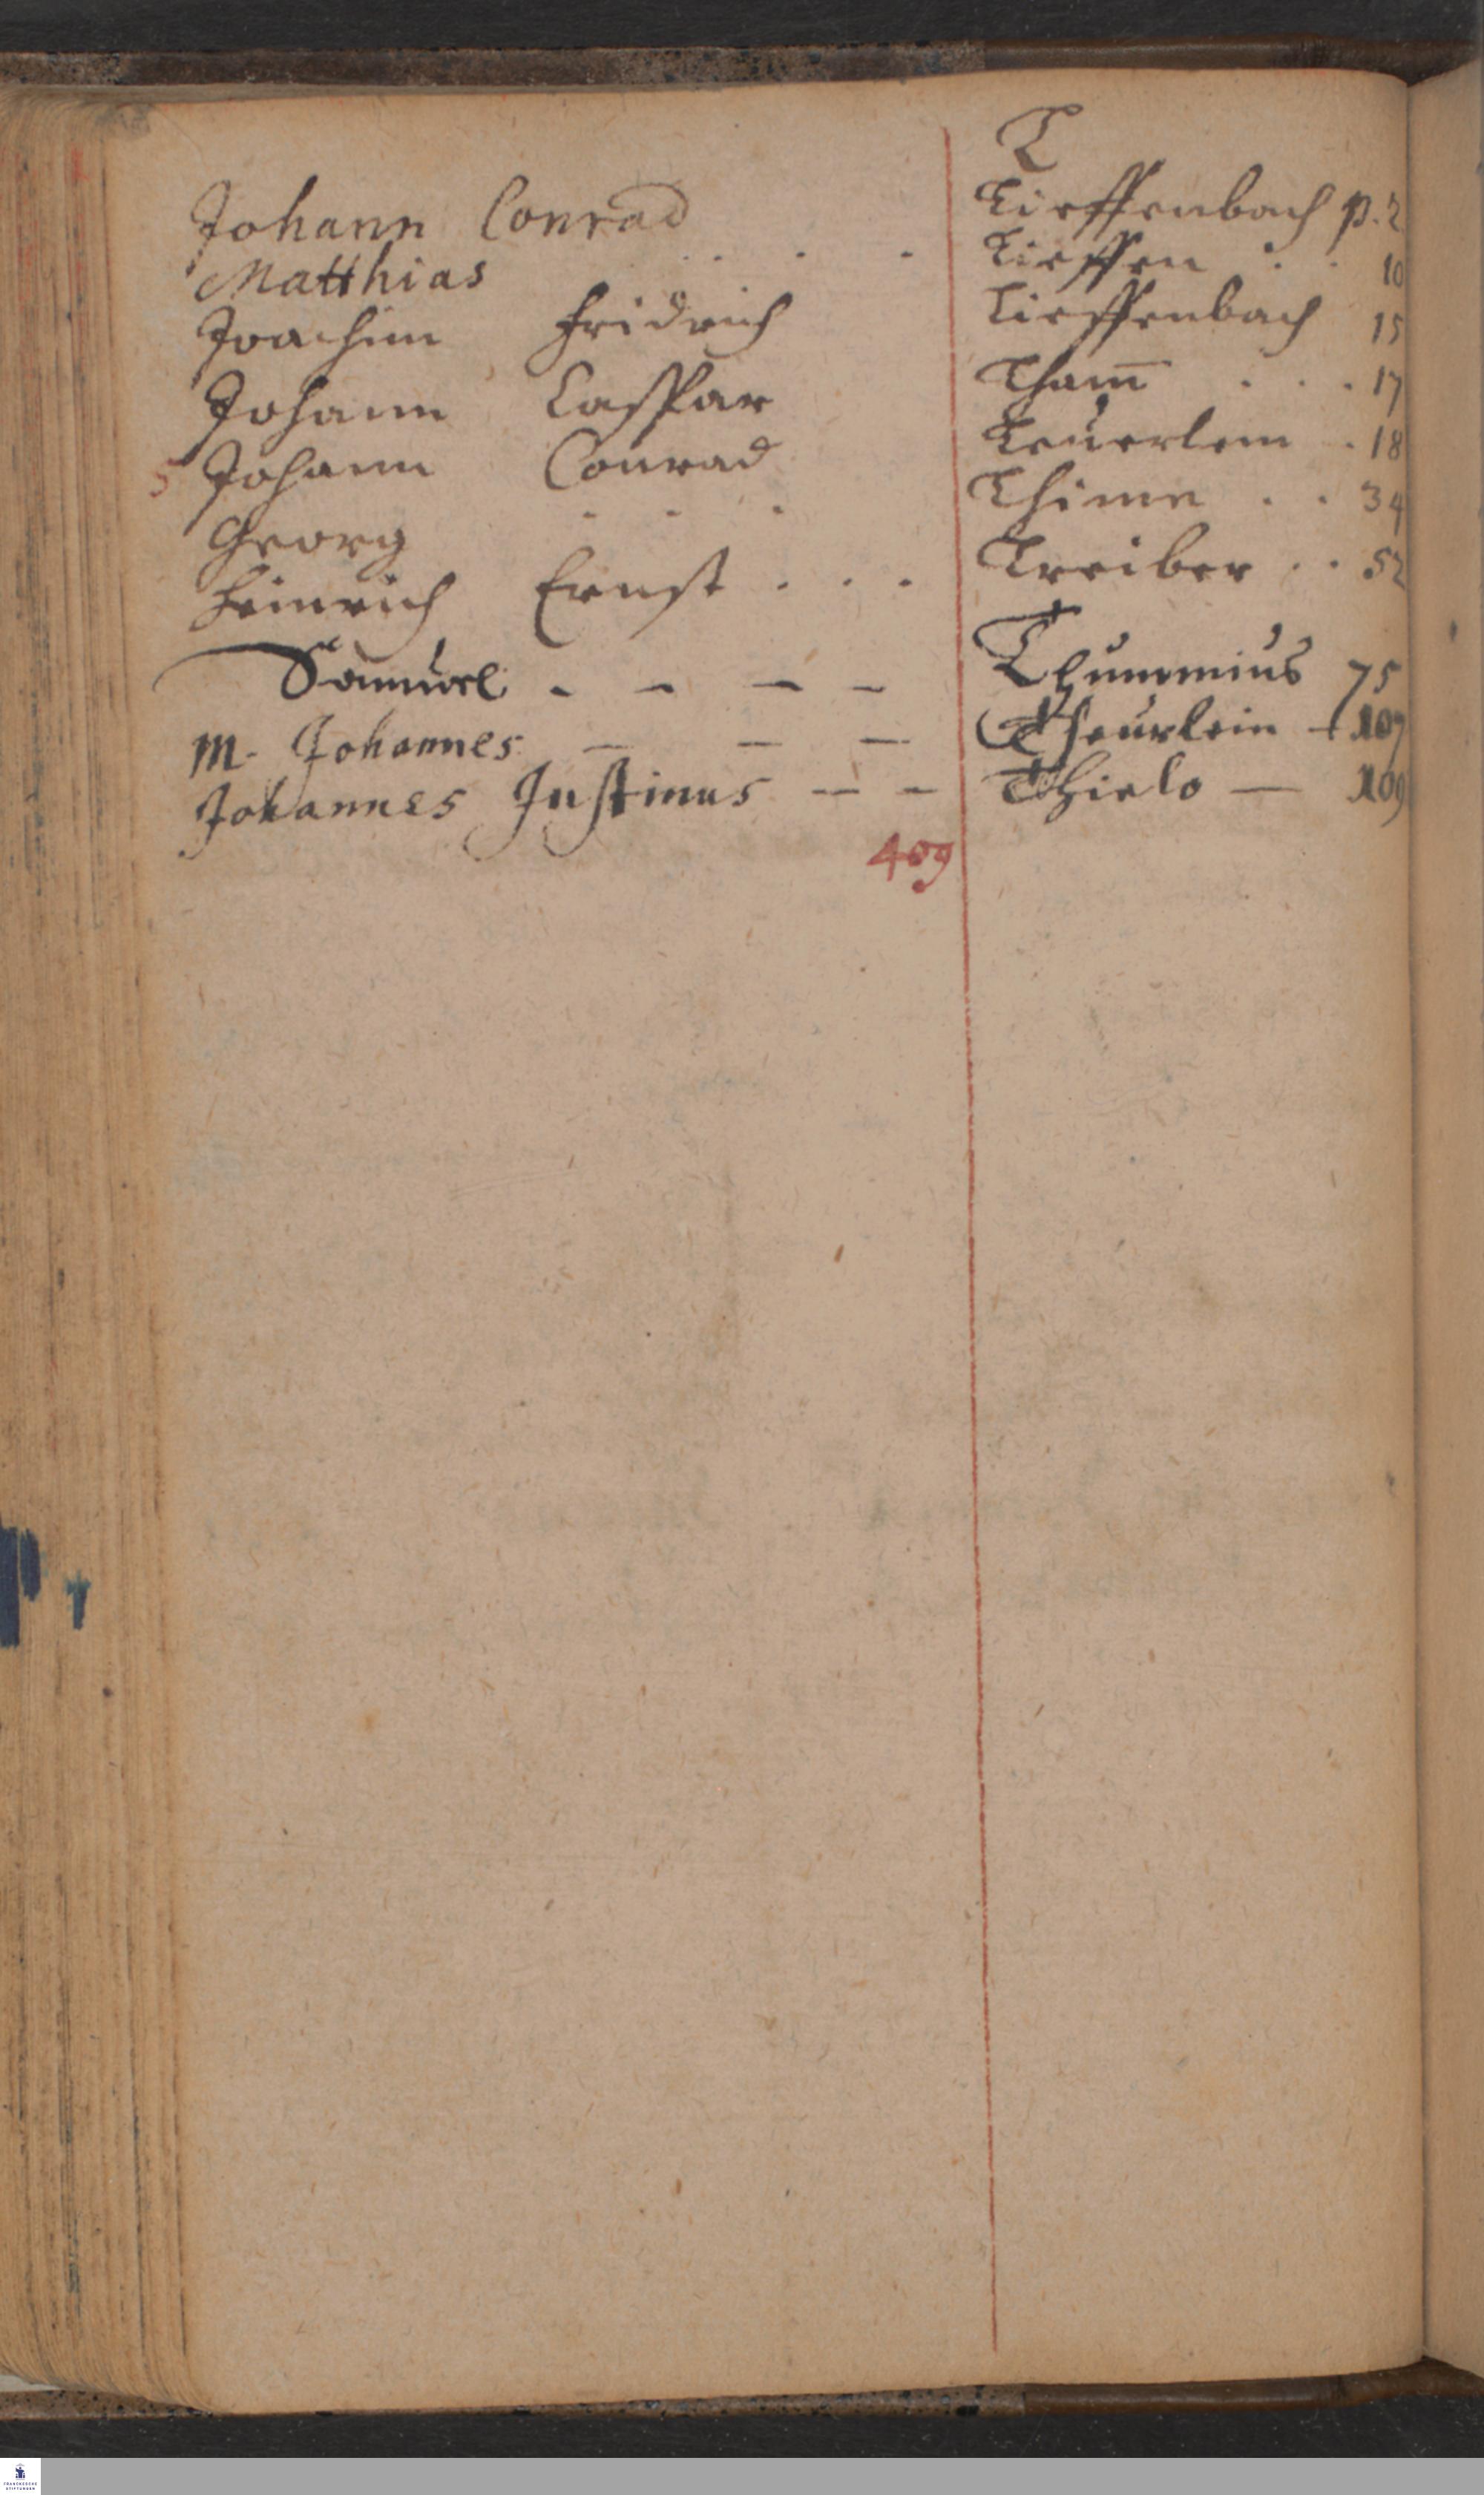 T
Johann Conrad Tieffenbach p. 2
Matthias . . . Tieffen . . 10
Joachim Fridrich Tieffenbach 15
Johann Casspar Tham̄ . . . 17
5 Johann Conrad Teuerlein . 18
Georg . . . Thime . . 34
Heinrich Ernst . . . Treiber . . 52
Samuel - - - - Thummius 75
M. Johannes — — — Theurlein — 107
Johannes Justinus — — Thielo — 109
409
FRANCKESCHE
STIFTUNGEN